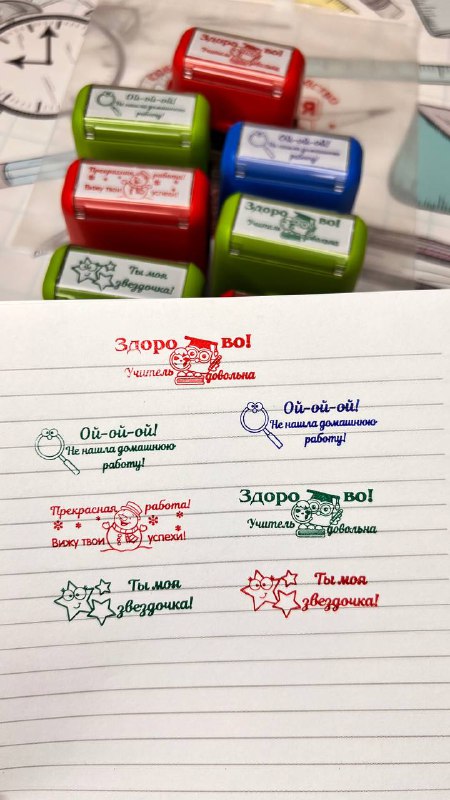 Здорово!
Учитель довольна
Ой-ой-ой!
Не нашла домашнюю
работу!
Ой-ой-ой!
Не нашла домашнюю
работу!
Прекрасная работа!
Вижу твои успехи!
Здорово!
Учитель довольна
Ты моя
звездочка!
Здоро во!
Учитель довольна
Ой-ой-ой!
Не нашла домашнюю
работу!
Ой-ой-ой!
Не нашла домашнюю
работу!
Прекрасная работа!
Вижу твои успехи!
Здоро во!
Учитель довольна
Ты моя
звездочка!
Ты моя
звездочка!